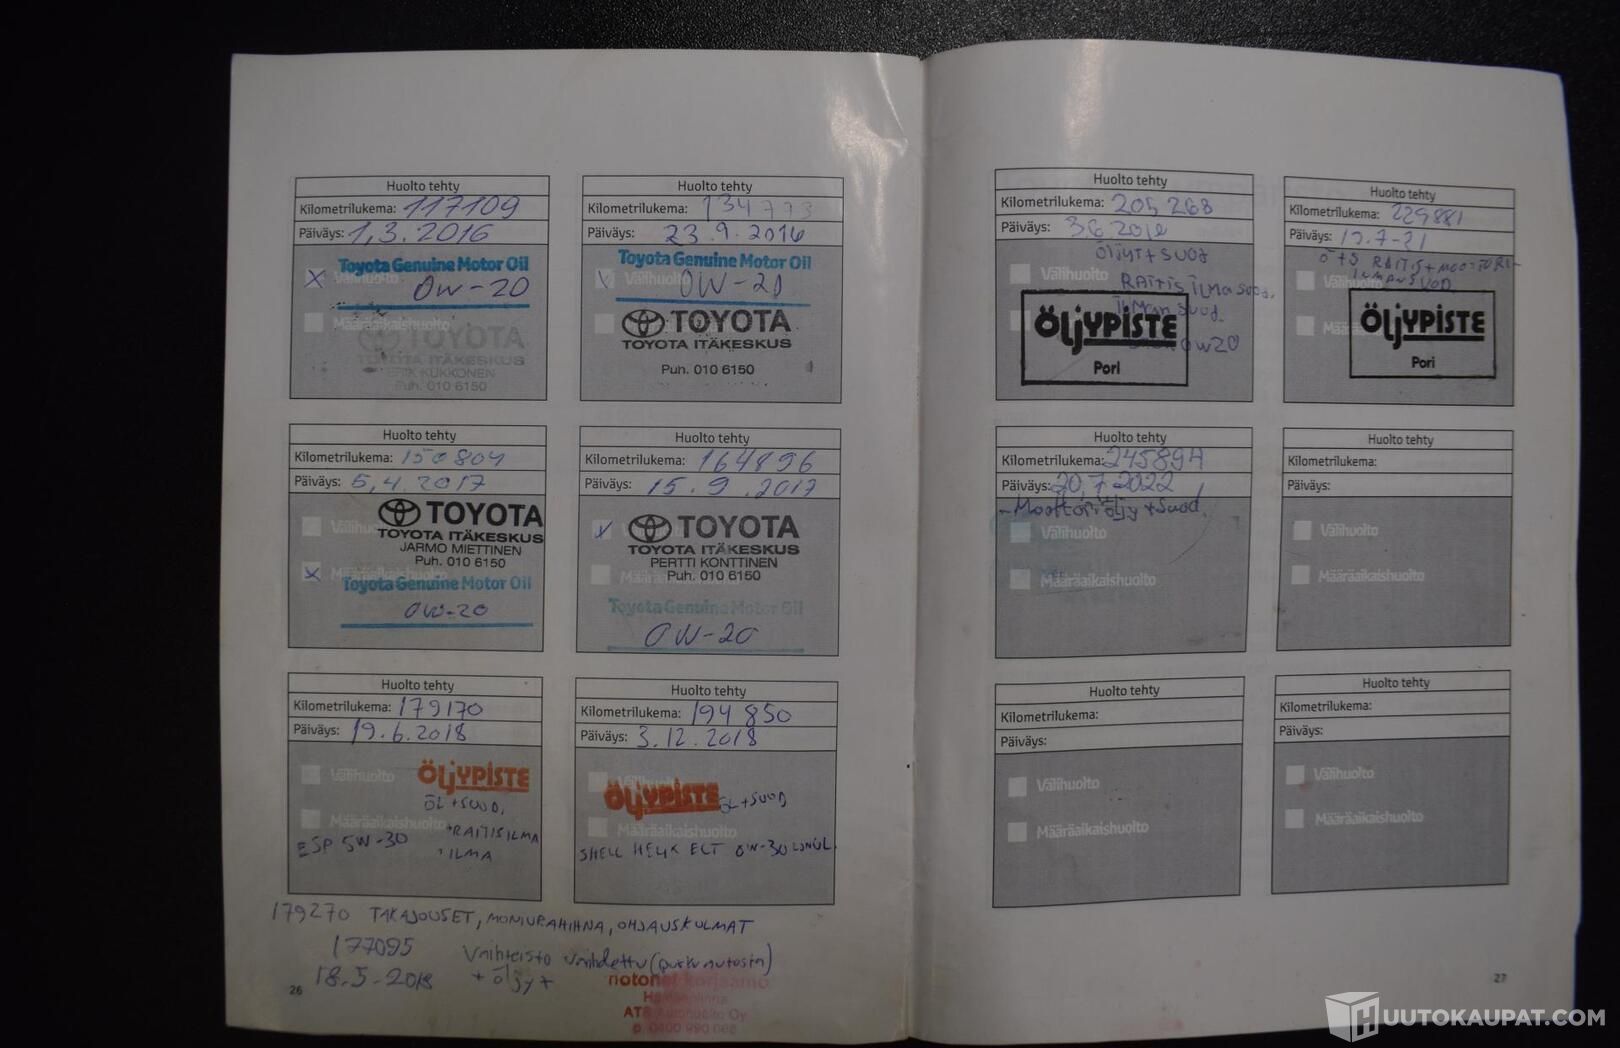 Huolto tehty
Kilometrilukema: 117109
Päiväys: 1.3.2016
Toyota Genuine Motor Oil
X Välihuolto
0W-20
Määräaikaishuolto
TOYOTA
TOYOTA ITÄKESKUS
ERIK KUKKONEN
Puh. 010 6150
Huolto tehty
Kilometrilukema: 134773
Päiväys: 23.9.2016
Toyota Genuine Motor Oil
Välihuolto
0W-20
TOYOTA
TOYOTA ITÄKESKUS
Puh. 010 6150
Huolto tehty
Kilometrilukema: 150804
Päiväys: 5.4.2017
TOYOTA
Välihuolto
TOYOTA ITÄKESKUS
JARMO MIETTINEN
Puh. 010 6150
X Määräaikaishuolto
Toyota Genuine Motor Oil
0W-20
Huolto tehty
Kilometrilukema: 164896
Päiväys: 15.9.2017
TOYOTA
TOYOTA ITÄKESKUS
PERTTI KONTTINEN
Puh. 010 6150
Määräaikaishuolto
Toyota Genuine Motor Oil
0W-20
Huolto tehty
Kilometrilukema: 179170
Päiväys: 19.6.2018
Välihuolto
ÖLJYPISTE
ÖL+SUOD,
Määräaikaishuolto
RAITISILMA
ESP 5W-30
ILMA
Huolto tehty
Kilometrilukema: 194850
Päiväys: 3.12.2018
Välihuolto
ÖLJYPISTE
ÖL+SUOD
Määräaikaishuolto
SHELL HELIX ECT 0W-30
179270 TAKAJOUSET, MONIURAHIHNA, OHJAUSKULMAT
177095 Vaihteisto vaihdettu (purkuautosta)
18.5-2018 + öljyt
motonet korjaamo
Hämeenlinna
ATS Autohuolto Oy
26
Huolto tehty
Kilometrilukema: 205268
Päiväys:
Öljyt+suod
Välihuolto
RAITIS ILMA SUOD.
ILMAN SUOD.
ÖLJYPISTE
0W20
Pori
Huolto tehty
Kilometrilukema: 229881
Päiväys:
Ö+S RAITIS+MOOTTORI-
ILMANSUOD.
ÖLJYPISTE
Pori
Huolto tehty
Kilometrilukema: 245894
Päiväys: 20.7.2022
- Moottoriöljy + Suod.
Välihuolto
Määräaikaishuolto
Huolto tehty
Kilometrilukema:
Päiväys:
Välihuolto
Määräaikaishuolto
Huolto tehty
Kilometrilukema:
Päiväys:
Välihuolto
Määräaikaishuolto
Huolto tehty
Kilometrilukema:
Päiväys:
Välihuolto
Määräaikaishuolto
27
HUUTOKAUPAT.COM